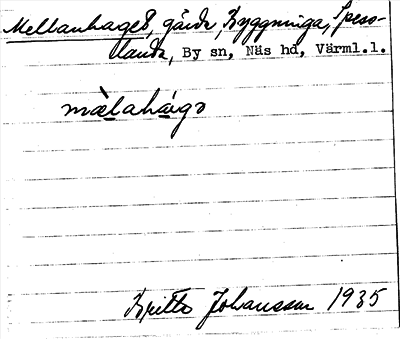 Mellanhaget, gärde, Byggninga, Spess-
landa, By sn, Näs hd, Värml.l.
mèlaháegə
Britta Johansson 1935